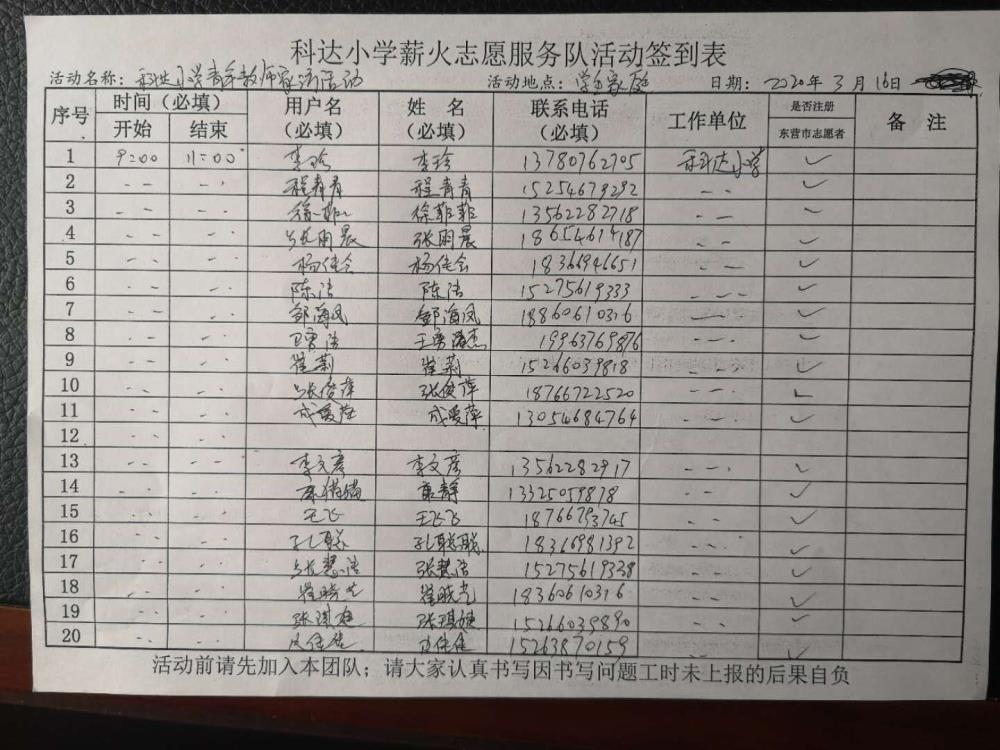 科达小学薪火志愿服务队活动签到表
活动名称：科达小学青年教师家访活动 活动地点：学生家庭 日期：2020年3月16日
序号 时间（必填） 用户名（必填） 姓 名（必填） 联系电话（必填） 工作单位 是否注册东营市志愿者 备 注
开始 结束
1 9:00 11:00 李玲 李玲 13780762705 科达小学 ✓
2 程青青 程青青 15254679292 ✓
3 徐菲菲 徐菲菲 13562282718 ✓
4 张雨晨 张雨晨 18654614187 ✓
5 杨佳会 杨佳会 18366946651 ✓
6 陈洁 陈洁 15275619333 ✓
7 邹海凤 邹海凤 18860610316 ✓
8 王勇 19963769876 ✓
9 崔莉 崔莉 15266039818 ✓
10 张俊萍 张俊萍 18766722520 ✓
11 成爱萍 成爱萍 13054684764 ✓
12
13 李文彦 李文彦 13562282917 ✓
14 静 13325059878 ✓
15 王飞 王飞飞 18766793745 ✓
16 孔聪 孔聪聪 18366981392 ✓
17 张慧洁 张慧洁 15275619338 ✓
18 崔晓芝 崔晓芝 18360610316 ✓
19 张琪 张琪 15266039890 ✓
20 15263870159 ✓
活动前请先加入本团队；请大家认真书写因书写问题工时未上报的后果自负